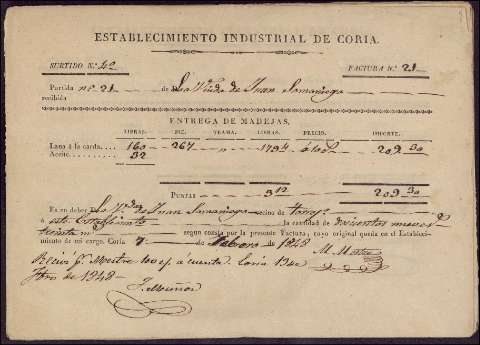 ESTABLECIMIENTO INDUSTRIAL DE CORIA.
SURTIDO N.º 42 FACTURA N.º 21
Partida nº 21 de La Viuda de Juan Samaniego
recibida
ENTREGA DE MADEJAS,
LIBRAS. PIE. TRAMA. LIBRAS. PRECIO. IMPORTE.
Lana á la carda.... 160 267 209 30
Aceite.... 32
PUNTAS 312 209 30
Es en deber La V.da de Juan Samaniego vecino de
á este Establecimiento la cantidad de doscientos nueve
treinta según consta por la presente Factura, cuyo original queda en el Establecimiento
miento de mi cargo. Coria 7 de Febrero de 1848
M. Mestre
Recibi p.r Mestre 100 á cuenta. Coria 13 de
de 1848
J. Muñoz